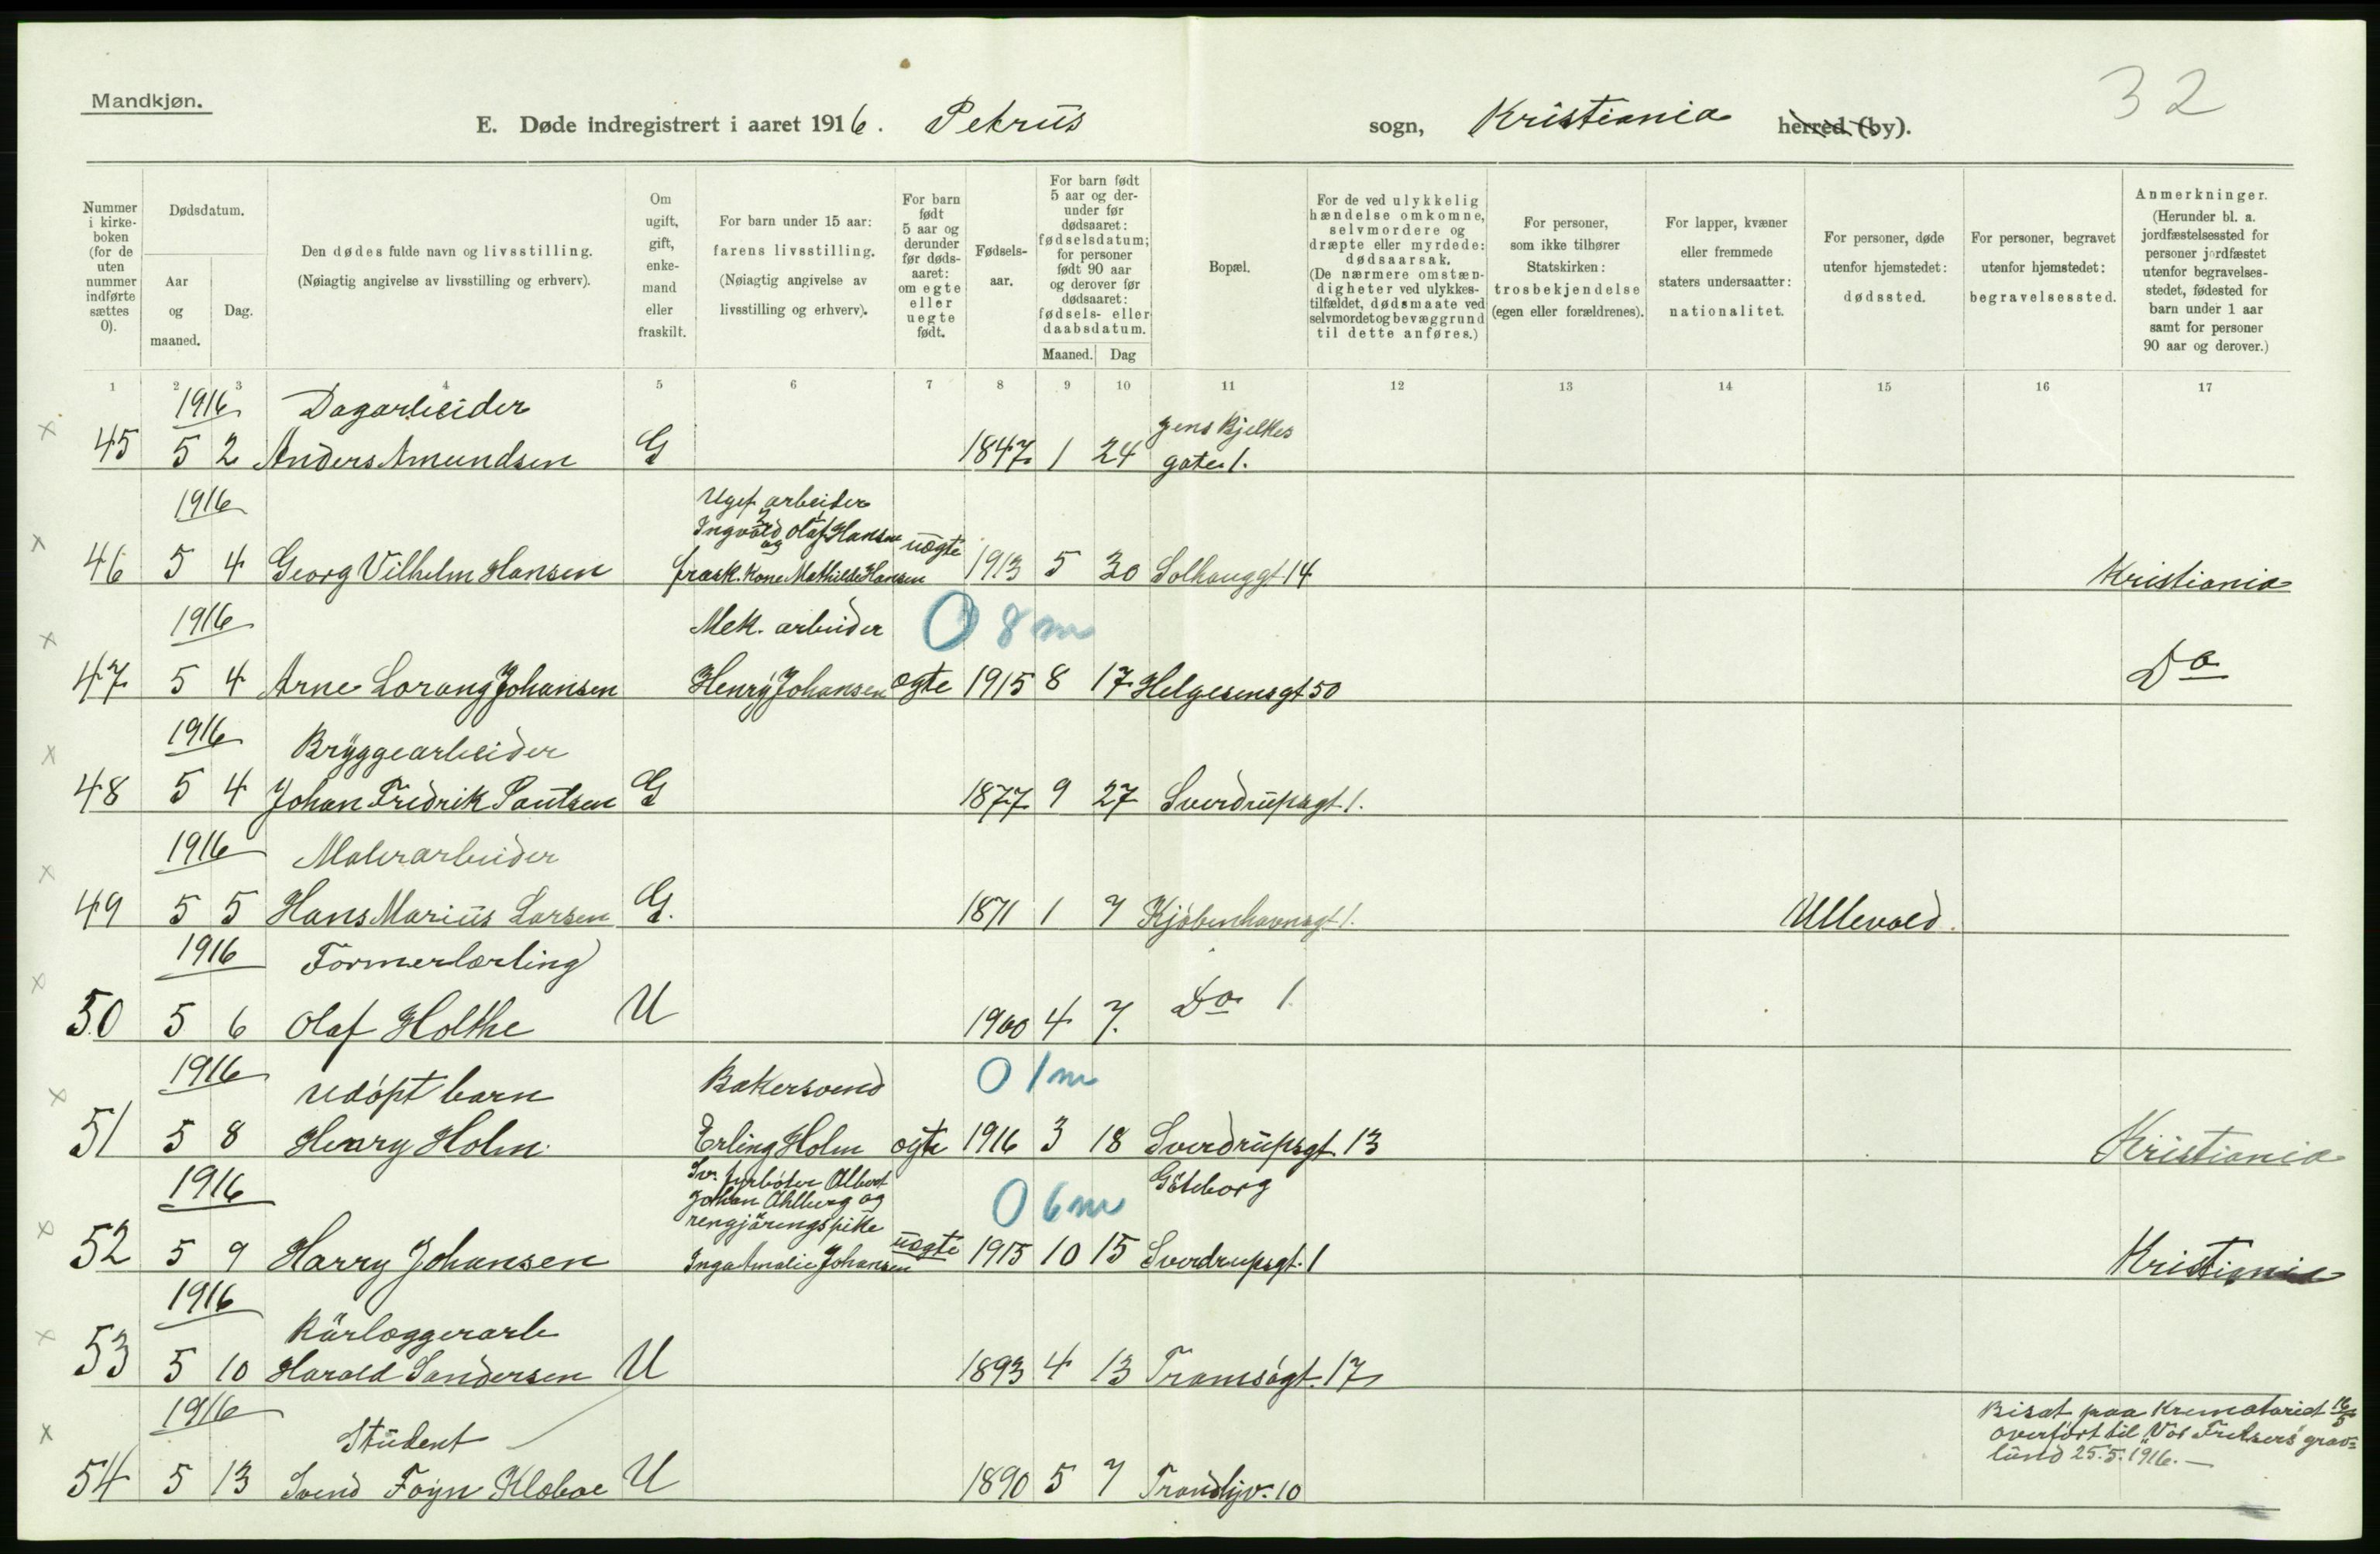 Mandkjøn.
32
E. Døde indregistrert i aaret 1916. Petrus sogn, Kristiania herred (by).
Nummer i kirke-boken (for de uten nummer indførte sættes 0).
Dødsdatum.
Aar og maaned.
Dag.
Den dødes fulde navn og livsstilling.
(Nøiagtig angivelse av livsstilling og erhverv).
Om ugift, gift, enke-mand eller fraskilt.
For barn under 15 aar: farens livsstilling.
(Nøiagtig angivelse av livsstilling og erhverv).
For barn født 5 aar og derunder før døds-aaret: om egte eller uegte født.
Fødsels-aar.
For barn født 5 aar og der-under før dødsaaret: fødselsdatum; for personer født 90 aar og derover før dødsaaret: fødsels- eller daabsdatum.
Maaned. Dag
Bopæl.
For de ved ulykkelig hændelse omkomne, selvmordere og dræpte eller myrdede: dødsaarsak.
(De nærmere omstæn-digheter ved ulykkes-tilfældet, dødsmaate ved selvmordet og bevæggrund til dette anføres.)
For personer, som ikke tilhører Statskirken: trosbekjendelse (egen eller forældrenes).
For lapper, kvæner eller fremmede staters undersaatter: nationalitet.
For personer, døde utenfor hjemstedet: dødssted.
For personer, begravet utenfor hjemstedet: begravelsessted.
Anmerkninger.
(Herunder bl. a. jordfæstelsessted for personer jordfæstet utenfor begravelses-stedet, fødested for barn under 1 aar samt for personer 90 aar og derover.)
1 2 3 4 5 6 7 8 9 10 11 12 13 14 15 16 17
1916 Dagarbeider Jens Bjelkes
x 45 5 2 Anders Amundsen G 1847 1 24 gate 1.
1916 Ugif. arbeider
Ingvald Olaf Hansen
og uegte
x 46 5 4 Georg Vilhelm Hansen frask. kone Mathilde Hansen 1913 5 30 Solhauggt 14 Kristiania
1916 Mek. arbeider 0 8 m
x 47 5 4 Arne Lorang Johansen Henry Johansen egte 1915 8 17 Helgesensgt 50 Do
1916 Bryggearbeider
x 48 5 4 Johan Fredrik Paulsen G 1877 9 27 Sverdrupsgt. 1.
1916 Malerarbeider
x 49 5 5 Hans Marius Larsen G. 1871 1 7 Kjøbenhavnsgt 1. Ullevold.
1916 Formerlærling
x 50 5 6 Olaf Holthe U 1900 4 7. Do 1.
1916 Udøpt barn Bakersvend 0 1 m
x 51 5 8 Henry Holm Erling Holm egte 1916 3 18 Sverdrupsgt. 13 Kristiania
1916 Sv. fyrbøter Albert Göteborg
Johan Ahlberg og 0 6 m
rengjøringspike
x 52 5 9 Harry Johansen Inga Amalie Johansen uegte 1915 10 15 Sverdrupsgt. 1 Kristiania
1916 Rørlæggerarb
x 53 5 10 Harald Sandersen U 1893 4 13 Tromsøgt. 17
1916 Student
Bisat paa Krematoriet 16/5
overført til Vor Frelsers grav=
lund 25.5.1916.
x 54 5 13 Svend Foyn Klæboe U 1890 5 7 Trondhjv. 10